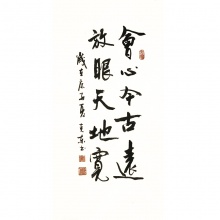 會心今古遠
放眼天地寬
歲在庚子夏